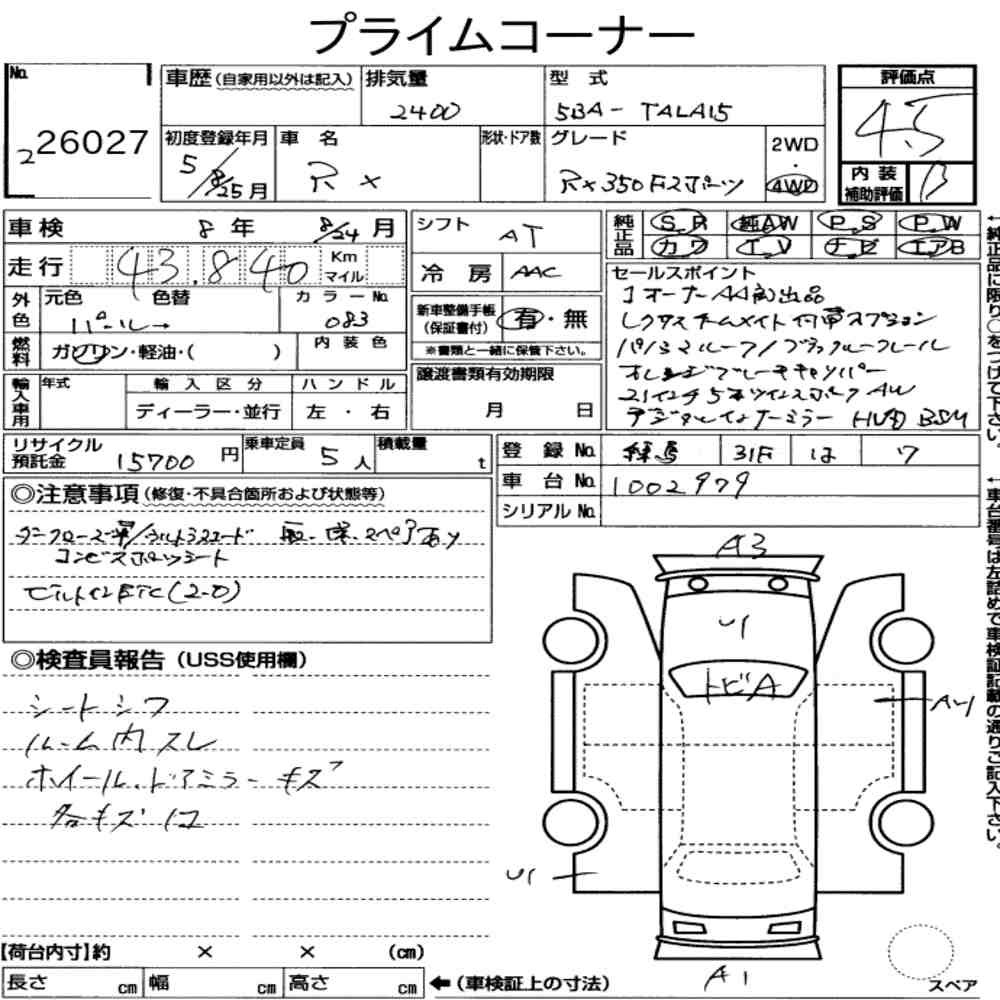 プライムコーナー
No.
2 26027
車歴 (自家用以外は記入)
排気量
2400
型 式
5BA- TALA15
評価点
4.5
初度登録年月
5/8/25月
車 名
Rx
形状・ドア数
グレード
Rx350Fスポーツ
2WD
・
4WD
内 装
補助評価
B
車検
8 年 8/24 月
走行
43,840
Km
マイル
シフト
AT
冷 房
AAC
純正品
S.R 純AW P.S P.W
カワ T.V ナビ エアB
セールスポイント
1オーナーAA初出品
レクサスチームメイト付帯オプション
パノラマルーフ/ブラックルーフレール
オレンジブレーキキャリパー
21インチ5本ツインスポークAW
デジタルインナーミラー HUD BSM
外色
元色
色替
パール→
カラーNo.
083
内 装 色
燃料
ガソリン・軽油・( )
新車整備手帳
(保証書付)
有・無
※書類と一緒に保管下さい。
輸入車用
年式
輸 入 区 分
ディーラー・並行
ハ ン ド ル
左 ・ 右
譲渡書類有効期限
月 日
リサイクル
預託金
15700 円
乗車定員
5 人
積載量
t
登 録 No.
練馬
31F
は
ワ
車 台 No.
1002979
シリアル No.
◎注意事項 (修復・不具合箇所および状態等)
取、保、スペアあり
コンビスポーツシート
ビルトインETC(2.0)
◎検査員報告 (USS使用欄)
シートシワ
ルーム内スレ
ホイール、ドアミラーキズ
各キズ凹
A3
U1
トビA
AU1
U1
A1
スペア
【荷台内寸】約 × × (cm)
長さ cm
幅 cm
高さ cm
←(車検証上の寸法)
←純正品に限り○をつけて下さい。
←車台番号は左詰めで車検証記載の通りご記入下さい。